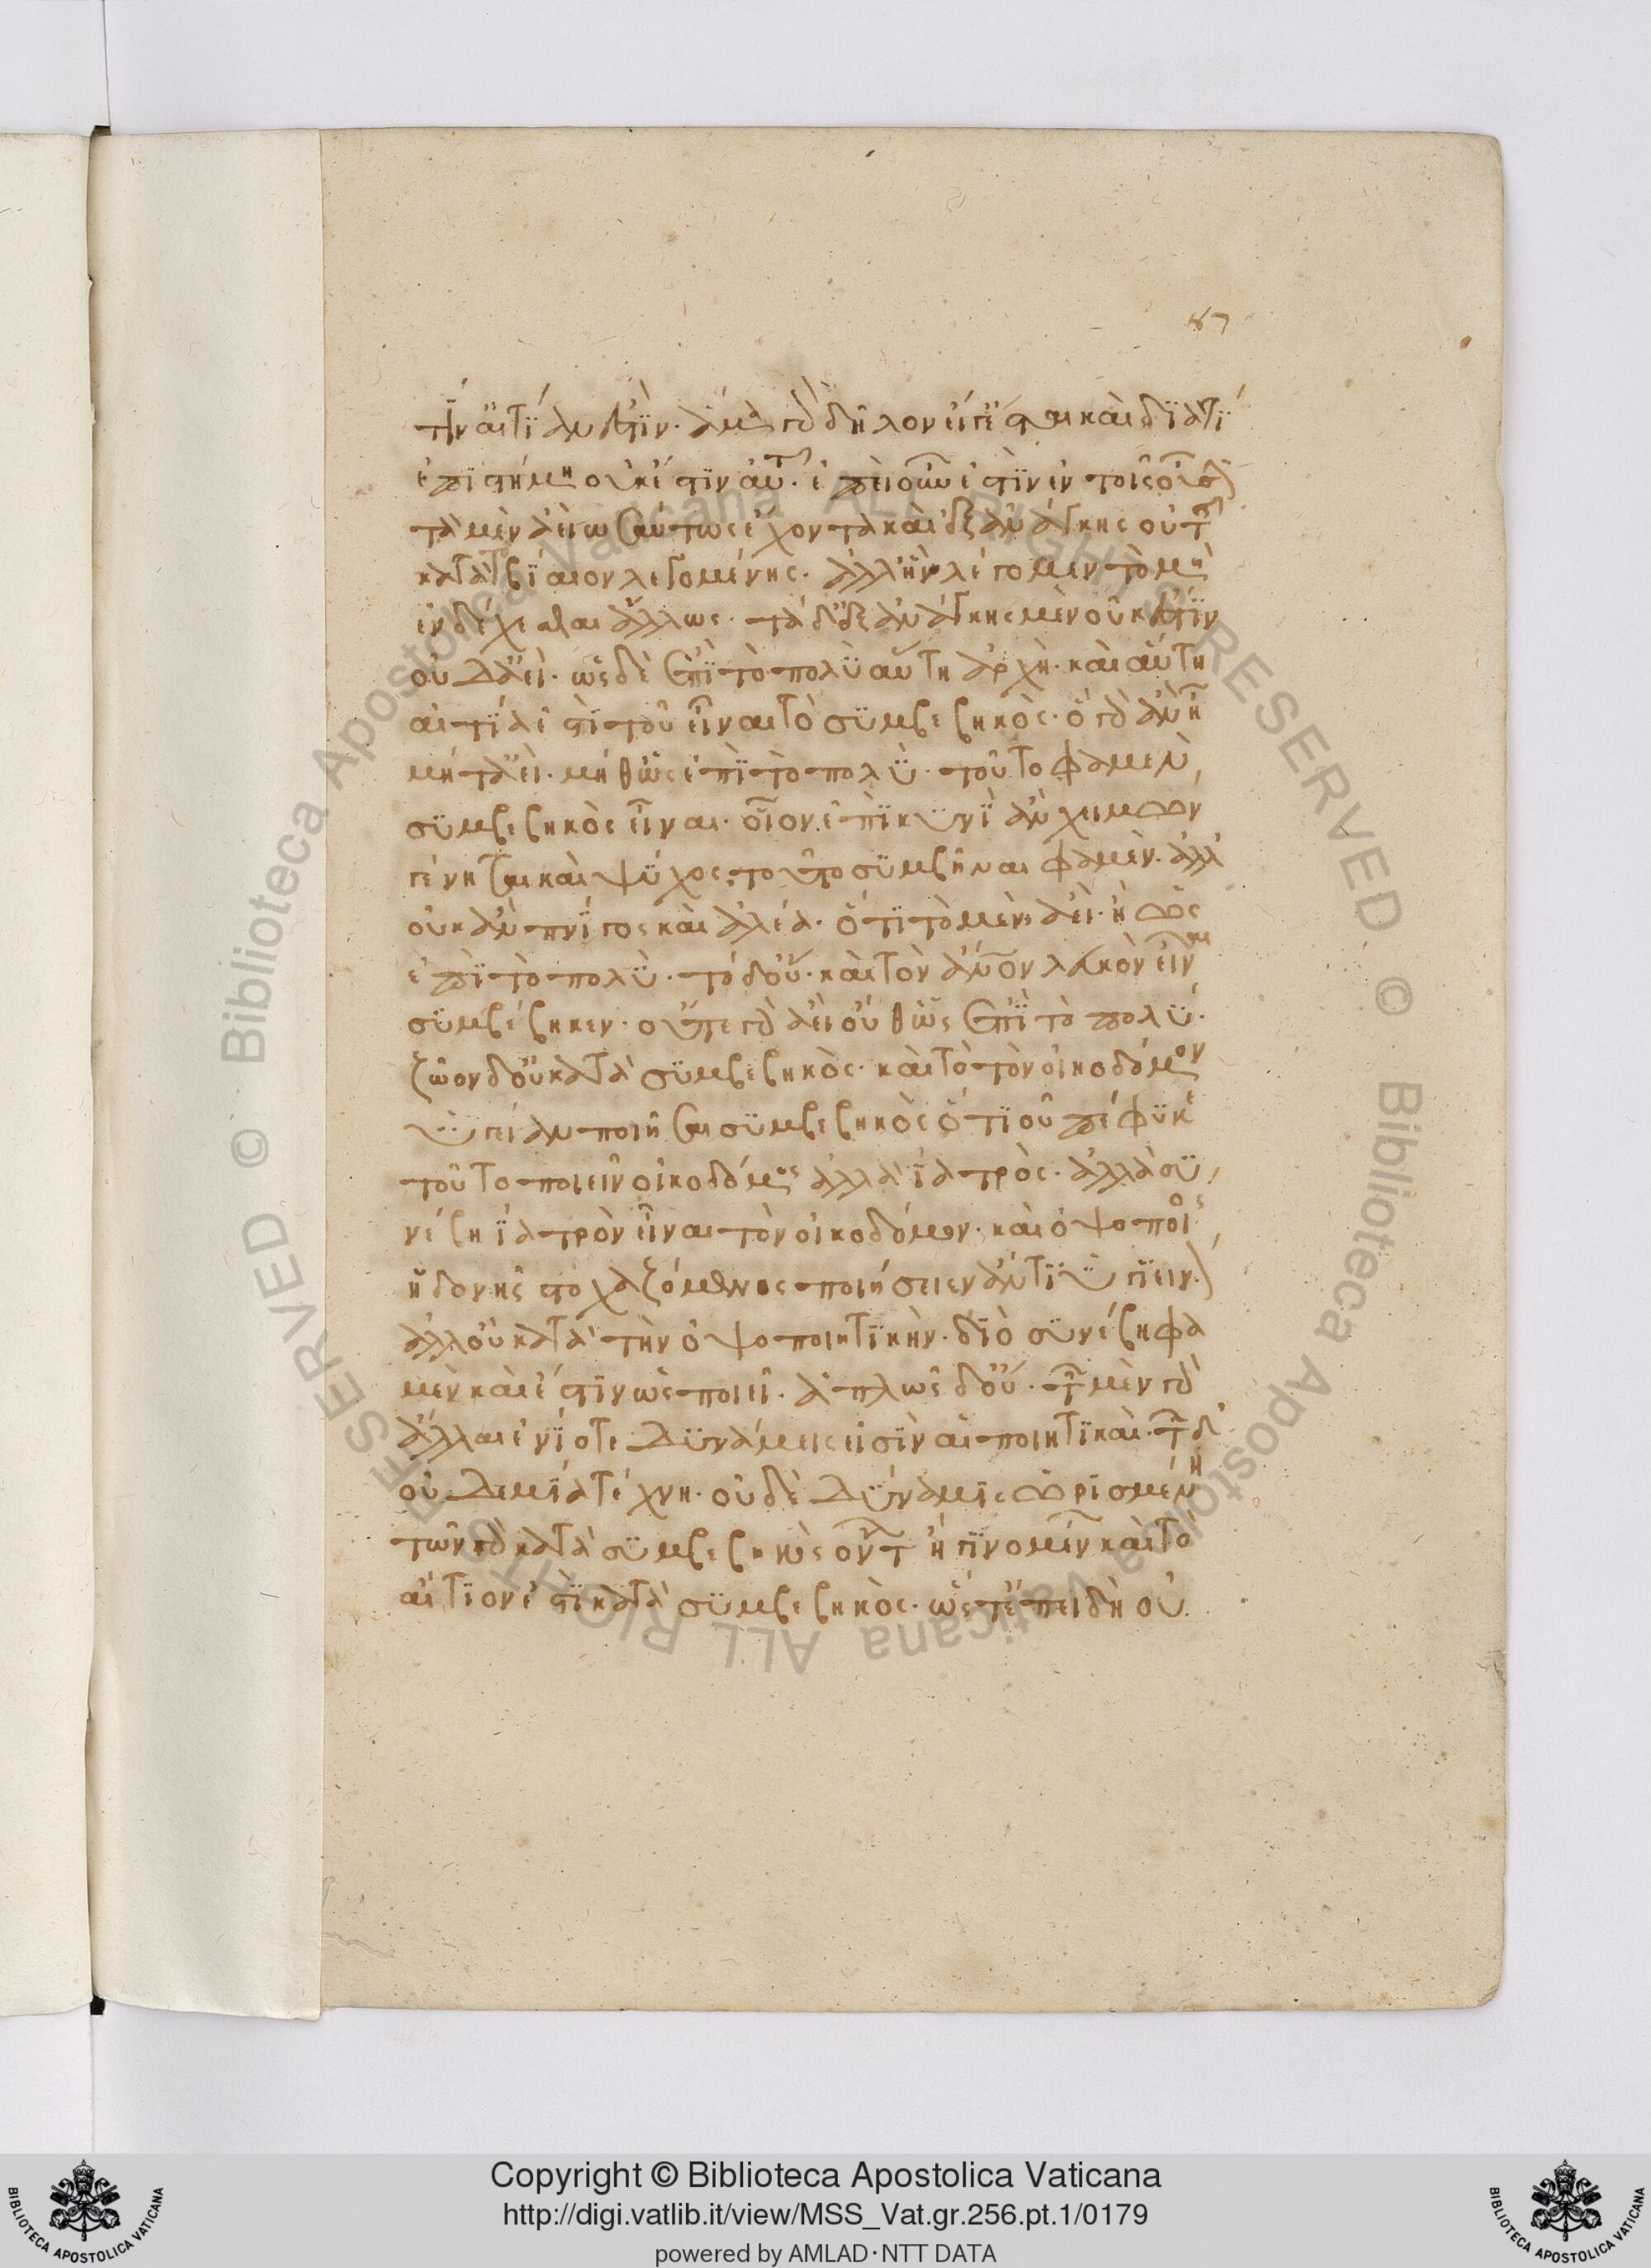 87
τίν᾽ αἰτίαν ἐστίν. ἅμα γὰρ δῆλον ἔσται καὶ διὰ τί
ἐπιστήμη οὐκ ἔστιν αὐτοῦ. ἐπεὶ οὖν ἐστὶν ἐν τοῖς οὖσι
τὰ μὲν ἀεὶ ὡσαύτως ἔχοντα καὶ ἐξ ἀνάγκης οὐ τῆς
κατὰ τὸ βίαιον λεγομένης. ἀλλ᾽ ἣν λέγομεν τὸ μὴ
ἐνδέχεσθαι ἄλλως. τὰ δ᾽ ἐξ ἀνάγκης μὲν οὐκ ἔστιν
οὐδ᾽ ἀεί. ὡς δὲ ἐπὶ τὸ πολὺ αὕτη ἀρχὴ. καὶ αὕτη
αἰτία ἐστὶ τοῦ εἶναι τὸ συμβεβηκὸς. ὃ γὰρ ἂν ᾖ
μήτ᾽ ἀεὶ. μήθ᾽ ὡς ἐπὶ τὸ πολὺ. τοῦτο φαμὲν
συμβεβηκὸς εἶναι. οἷον ἐπὶ κυνὶ ἂν χειμὼν
γένηται καὶ ψύχος, τοῦτο συμβῆναι φαμὲν. ἀλλ᾽
οὐκ ἂν πνίγος καὶ ἀλέα. ὅτι τὸ μὲν ἀεὶ. ἢ ὡς
ἐπὶ τὸ πολὺ. τὸ δ᾽ οὔ. καὶ τὸν ἄνθρωπον λευκὸν εἶναι
συμβέβηκεν. οὔτε γὰρ ἀεὶ οὔθ᾽ ὡς ἐπὶ τὸ πολύ.
ζῶον δ᾽ οὐ κατὰ συμβεβηκὸς. καὶ τὸ τὸν οἰκοδόμον
ὑγίειαν ποιῆσαι συμβεβηκὸς ὅτι οὐ πέφυκε
τοῦτο ποιεῖν οἰκοδόμος ἀλλὰ ἰατρὸς. ἀλλὰ συ
νέβη ἰατρὸν εἶναι τὸν οἰκοδόμον. καὶ ὀψοποιὸς
ἡδονῆς στοχαζόμενος ποιήσειεν ἄν τι ὑγιεινόν
ἀλλ᾽ οὐ κατὰ τὴν ὀψοποιητικὴν. διὸ συνέβη φα
μὲν καὶ ἔστιν ὡς ποιεῖ. ἁπλῶς δ᾽ οὔ. τῶν μὲν γὰρ
ἄλλαι ἐνίοτε δυνάμεις εἰσὶν αἱ ποιητικαὶ. τῶν δ᾽
οὐδεμία τέχνη. οὐδὲ δύναμις ὡρισμένη
τῶν γὰρ κατὰ συμβεβηκὸς ὄντων ἢ γινομένων καὶ τὸ
αἴτιον ἐστὶ κατὰ συμβεβηκὸς. ὥστ᾽ ἐπειδὴ οὐ
© Biblioteca Apostolica Vaticana ALL RIGHTS RESERVED
© Biblioteca Apostolica Vaticana ALL RIGHTS RESERVED
Copyright © Biblioteca Apostolica Vaticana
http://digi.vatlib.it/view/MSS_Vat.gr.256.pt.1/0179
powered by AMLAD·NTT DATA
BIBLIOTECA APOSTOLICA VATICANA
BIBLIOTECA APOSTOLICA VATICANA